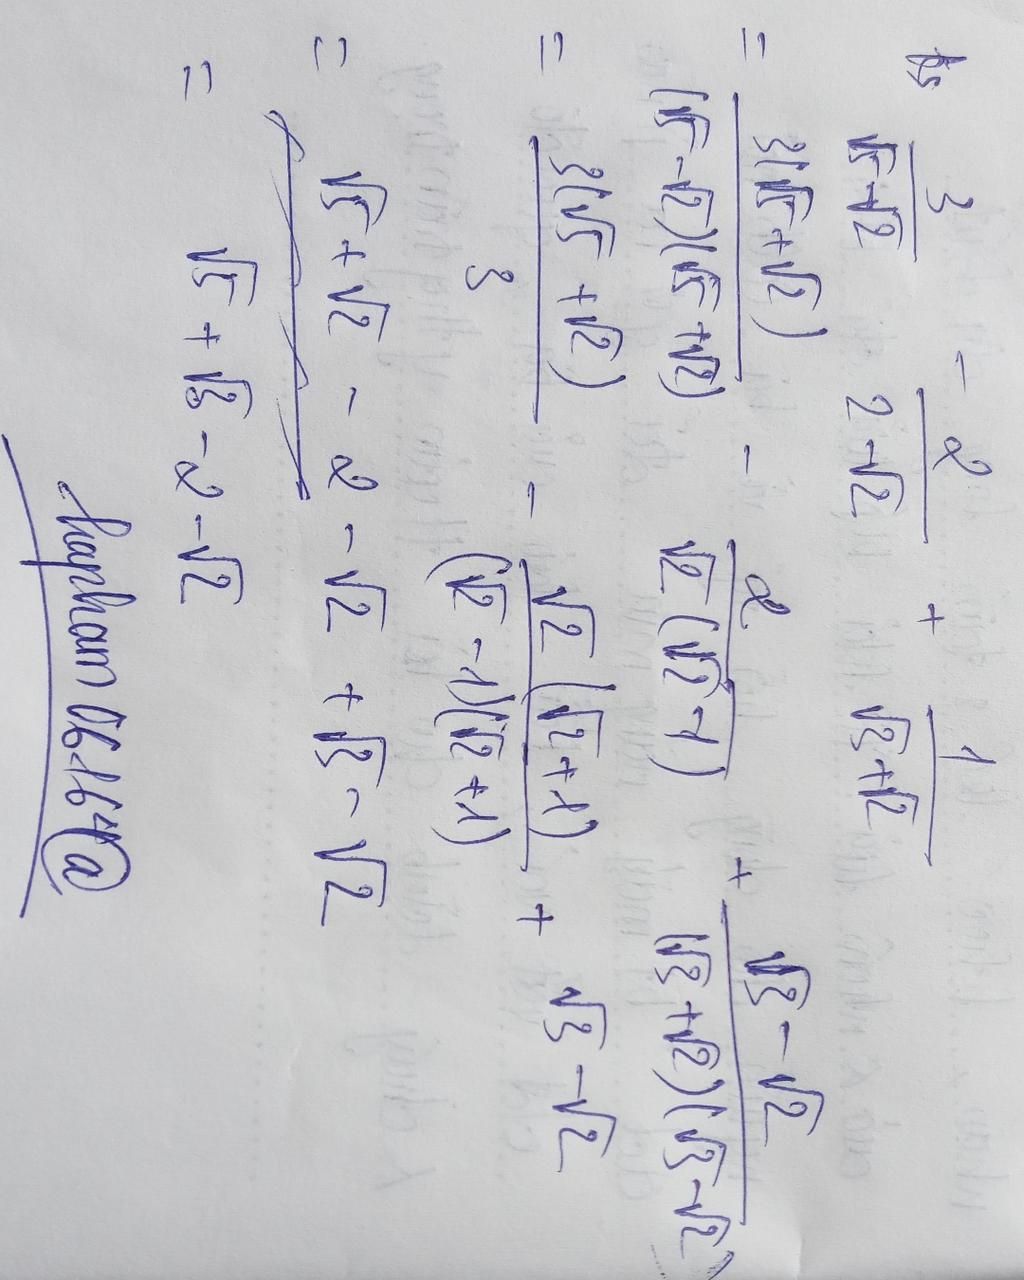 3/(√5+√2) - 2/(2-√2) + 1/(√3+√2)
= 3(√5+√2)/((√5-√2)(√5+√2)) - 2/(√2(√2-1)) + (√3-√2)/((√3+√2)(√3-√2))
= 3(√5+√2)/3 - √2(√2+1)/((√2-1)(√2+1)) + √3-√2
= √5+√2 - 2 - √2 + √3 - √2
= √5 + √3 - 2 - √2
hapham